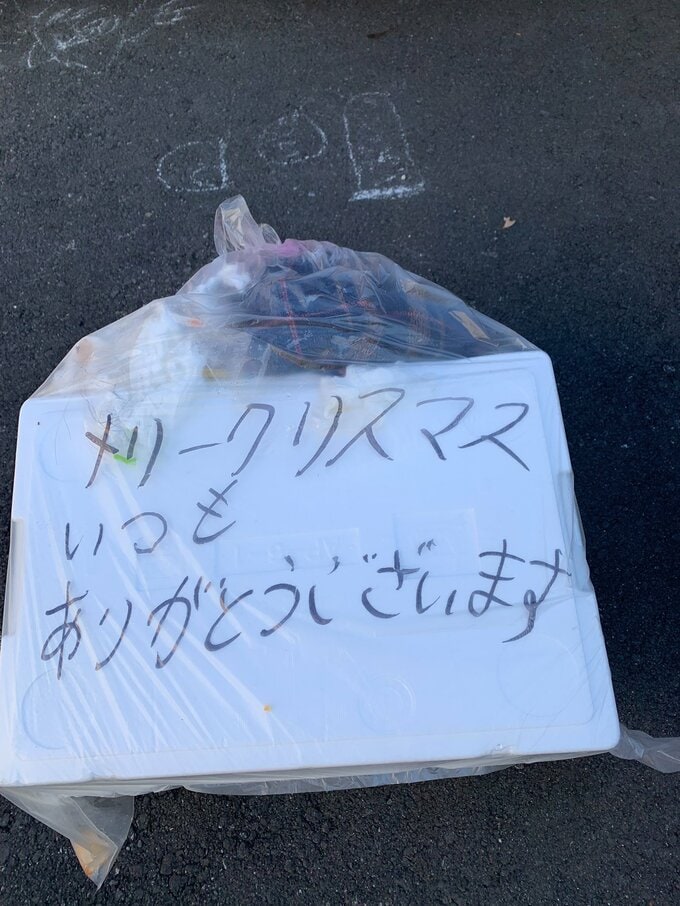 メリークリスマス
いつも
ありがとうございます